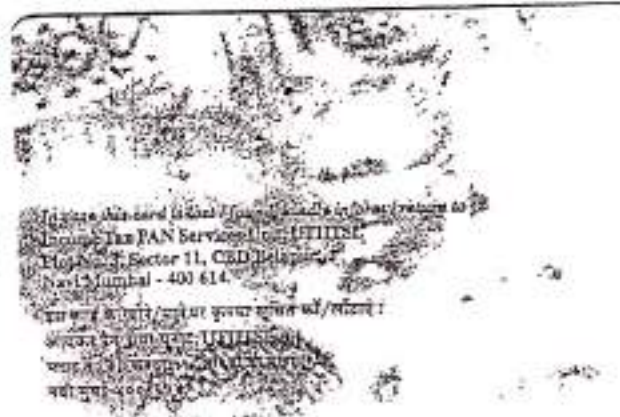 In case this card is lost / found, kindly inform / return to
Income Tax PAN Services Unit, UTIITSL
Plot No. 3, Sector 11, CBD Belapur,
Navi Mumbai - 400 614.
इस कार्ड के खोने/पाने पर कृपया सूचित करें/लौटाएं :
आयकर पैन सेवा यूनिट, UTIITSL
प्लाट नं: ३, सेक्टर ११
नवी मुंबई-४००